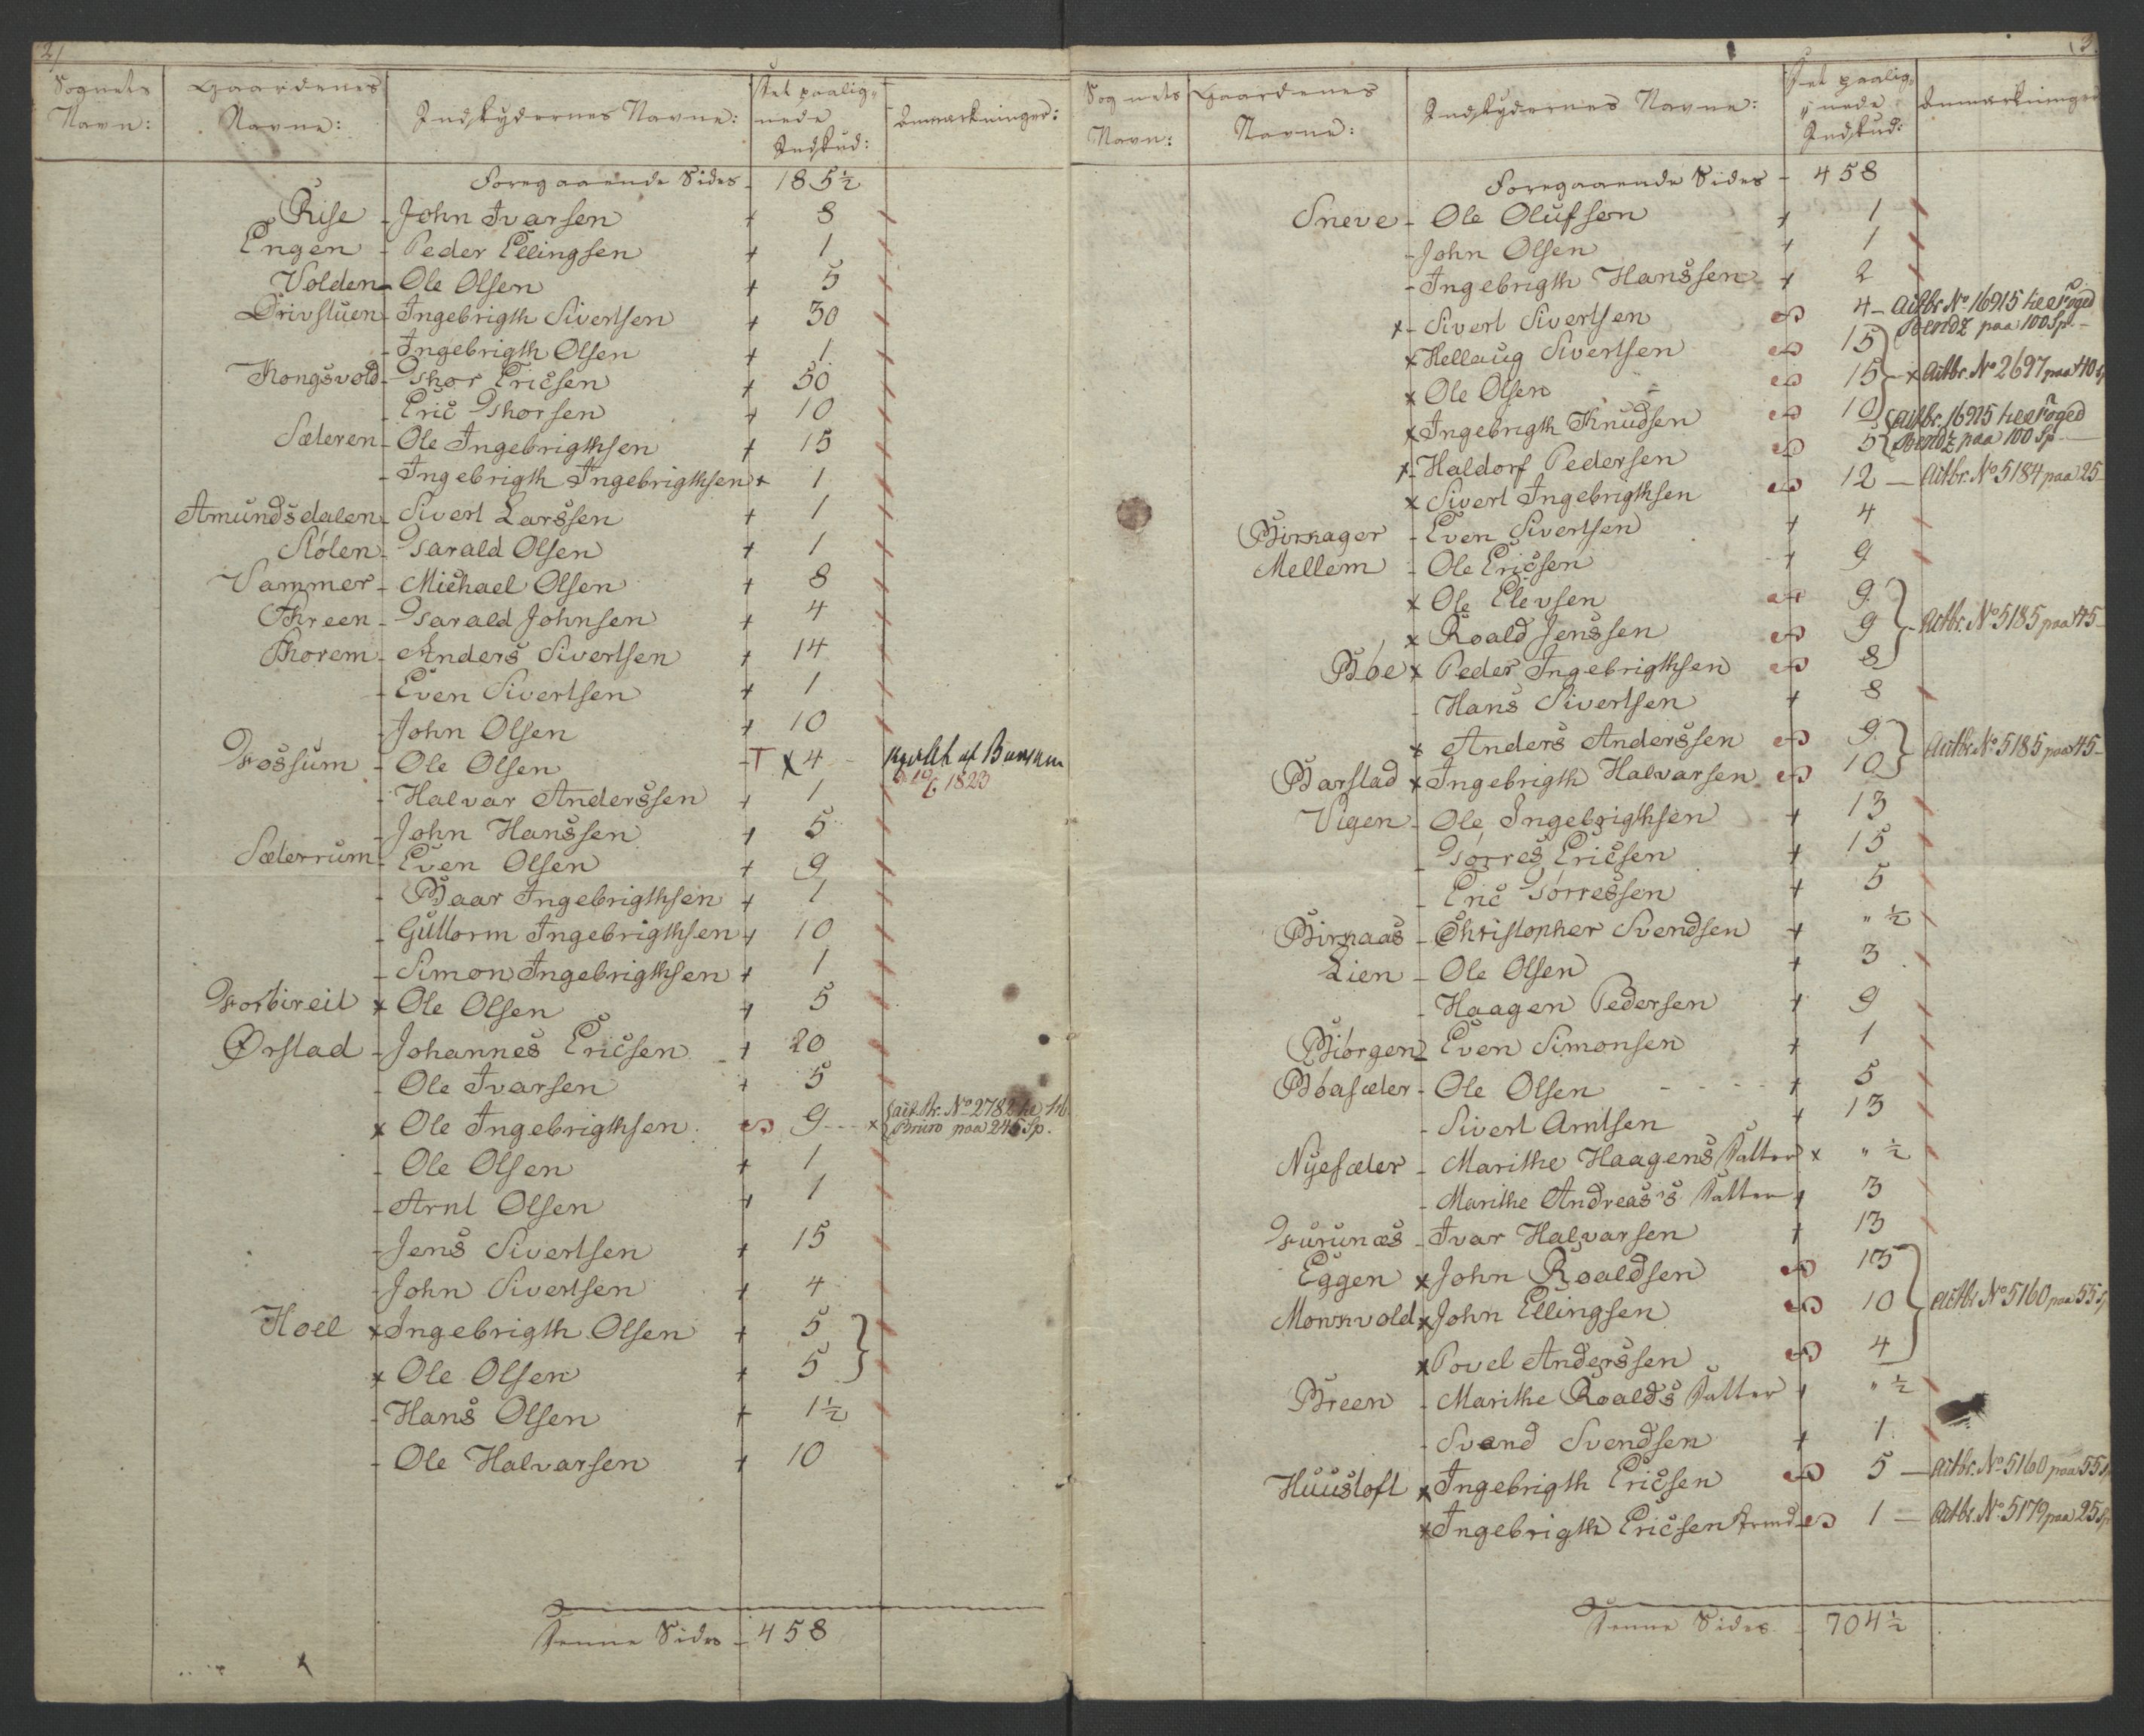 2/
Sognets Navn: Gaardenes Navne: Indskydernes Navne: Det paalignede Indskud: Anmærkninger:
Foregaaende Sides - 185½
Rise - John Ivarsen + 8
Engen - Peder Ellingsen + 1
Volden - Ole Olsen + 5
Drivstuen - Ingebrigth Sivertsen + 30
- Ingebrigth Olsen + 1
Kongsvold - Thor Ericsen + 50
- Eric Thorsen + 10
Sæteren - Ole Ingebrigthsen + 15
- Ingebrigth Ingebrigthsen + 1
Amundsdalen - Sivert Larssen + 1
Stølen - Tarald Olsen + 1
Vammer - Michael Olsen + 8
Threen - Tarald Johnsen + 4
Thorem - Anders Sivertsen + 14
- Even Sivertsen + 1
- John Olsen + 10
Fossum - Ole Olsen - T x 4 -
1823
- Halvar Anderssen + 1
- John Hanssen + 5
Sæterrum - Even Olsen + 9
- Baar Ingebrigthsen + 1
- Guttorm Ingebrigthsen + 10
- Simon Ingebrigthsen + 1
Forbireit x Ole Olsen + 5
Ørstad - Johannes Ericsen + 20
- Ole Ivarsen + 5
x Ole Ingebrigthsen 9 - - x actbr. No 2782
Bruro paa 245 Sp.
- Ole Olsen + 1
- Arnt Olsen + 1
- Jens Sivertsen + 15
- John Sivertsen + 4
Hoel x Ingebrigth Olsen + 5
x Ole Olsen + 5
- Hans Olsen + 1½
- Ole Halvarsen + 10
Denne Sides - 458
3
Sognets Navn: Gaardenes Navne: Indskydernes Navne: Det paalignede Indskud: Anmærkninger
Foregaaende Sides - 458
Sneve - Ole Olufsen + 1
- John Olsen + 1
- Ingebrigth Hanssen + 2
x - Sivert Sivertsen 4 - Actbr. No 16915 til Foged
Bendz paa 100 Sp. -
x Hellaug Sivertsen 15
x Ole Olsen 15 - x Actbr. No 2697 paa 40 Sp
x Ingebrigth Knudsen 10
x Haldorf Pedersen 5 Actbr. 16915 til Foged
Bendz paa 100 Sp. -
x Sivert Ingebrigthsen 12 - Actbr. No 5184 paa 25 -
Birkager - Even Sivertsen + 4
Mellem - Ole Ericsen + 9
x Ole Elevsen 9
x Roald Jenssen 9 - Actbr. No 5185 paa 45 -
Bøe x Peder Ingebrigthsen 8
- Hans Sivertsen + 8
x Anders Anderssen 9 Actbr. No 5185 paa 45 -
Barstad x Ingebrigth Halvarsen 10
Vigen - Ole Ingebrigthsen + 13
- Tørres Ericsen + 15
- Eric Tørressen + 5
Birkaas - Christopher Svendsen + " ½
Lien - Ole Olsen + 3
- Haagen Pedersen + 9
Biørgen - Even Simonsen + 1
Bøasæter - Ole Olsen - - - - + 5
- Sivert Arntsen + 13
Nyesæter - Marithe Haagens Datter x " ½
- Marithe Andreas's Datter + 3
Furunæs - Ivar Halvarsen + 13
Eggen x John Roaldsen 15
Monkvold x John Ellingsen 10 Actbr. No 5160 paa 55 Sp
x Povel Anderssen 4
Breen - Marithe Roalds Datter + " ½
- Svend Svendsen + 1
Huustoft x Ingebrigth Ericsen 5 - Actbr. No 5160 paa 55 Sp
x Ingebrigth Ericsen 1 - Actbr. No 5179 paa 25 Sp
Denne Sides - 704½